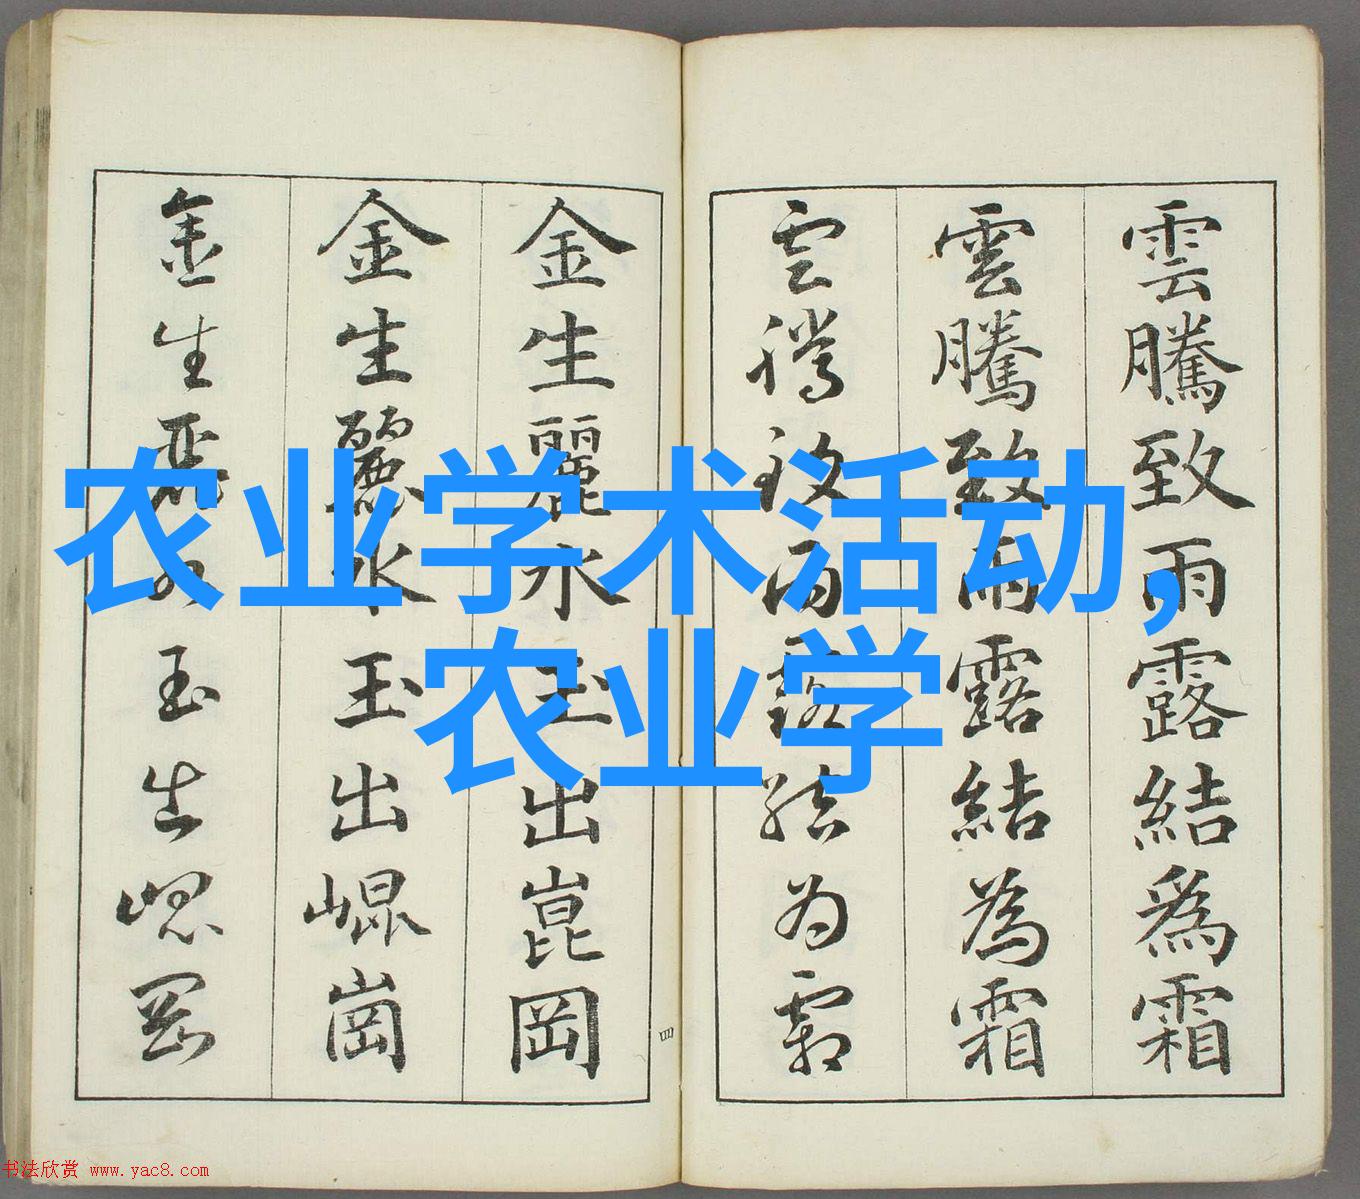 雲騰致雨露結爲霜
雲騰致雨露結為霜
雲騰致雨露結為霜
四
金生麗水玉出崑岡
金生麗水玉出崐崗
金生麗水玉出崐岡
农业学术活动,
农业学
书法欣赏 www.yac8.com